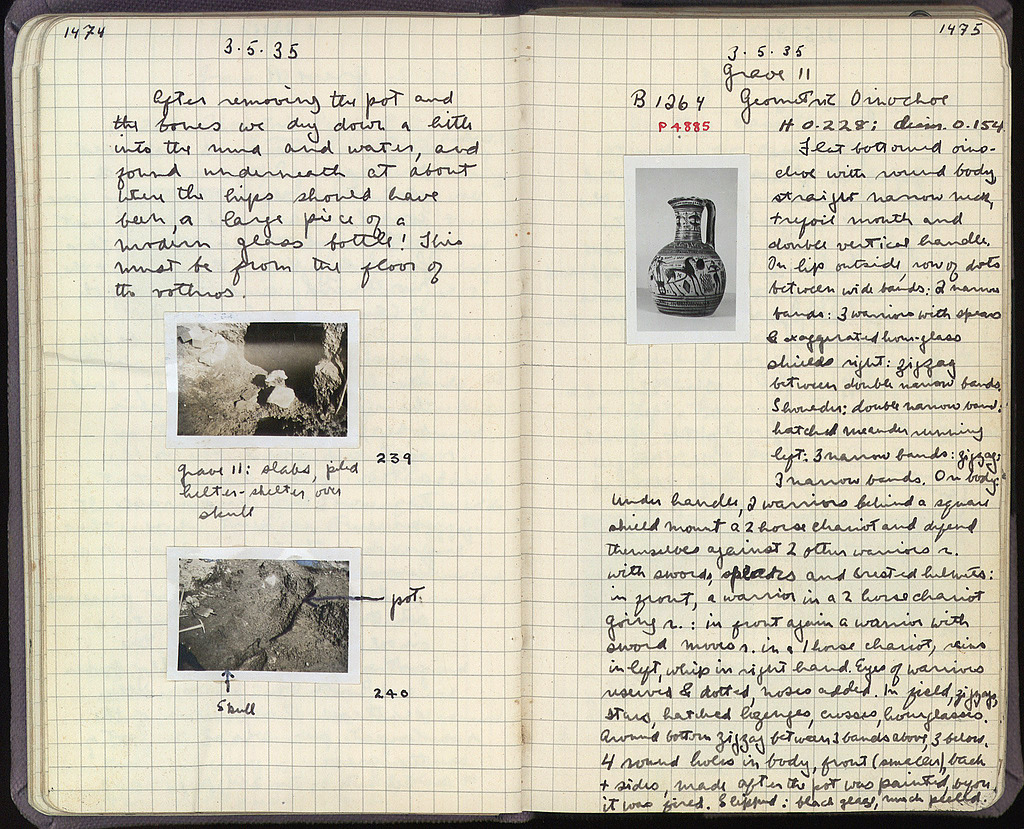 1474
3.5.35
After removing the pot and
the bones we dug down a little
into the mud and water, and
found underneath at about
where the hips should have
been, a large piece of a
modern glass bottle! This
must be from the floor of
the vothros.
239
grave 11: slabs, piled
helter-skelter over
skull
pot.
240
Skull
1475
3.5.35
Grave 11
B 1264 Geometric Oinochoe
P 4885
H 0.228; diam. 0.154
Flat bottomed oino-
choe with round body,
straight narrow neck,
trefoil mouth and
double vertical handle.
On lip outside, row of dots
between wide bands: 2 narrow
bands: 3 warriors with spears
& exaggerated hour-glass
shields right: zigzag
between double narrow bands.
Shoulder: double narrow band:
hatched meander running
left: 3 narrow bands: zigzag:
3 narrow bands. On body:
under handle, 2 warriors behind a square
shield mount a 2 horse chariot and defend
themselves against 2 other warriors r.
with swords, and crested helmets:
in front, a warrior in a 2 horse chariot
going r. : in front again a warrior with
sword moves r. in a 1 horse chariot, reins
in left, whip in right hand. Eyes of warriors
reserved & dotted, noses added. In field, zigzags,
stars, hatched lozenges, crosses, hourglasses.
Around bottom zigzag between 3 bands above, 3 below.
4 round holes in body, front (smaller), back
+ sides, made after the pot was painted, before
it was fired. Slipped: black glaze, much peeled.